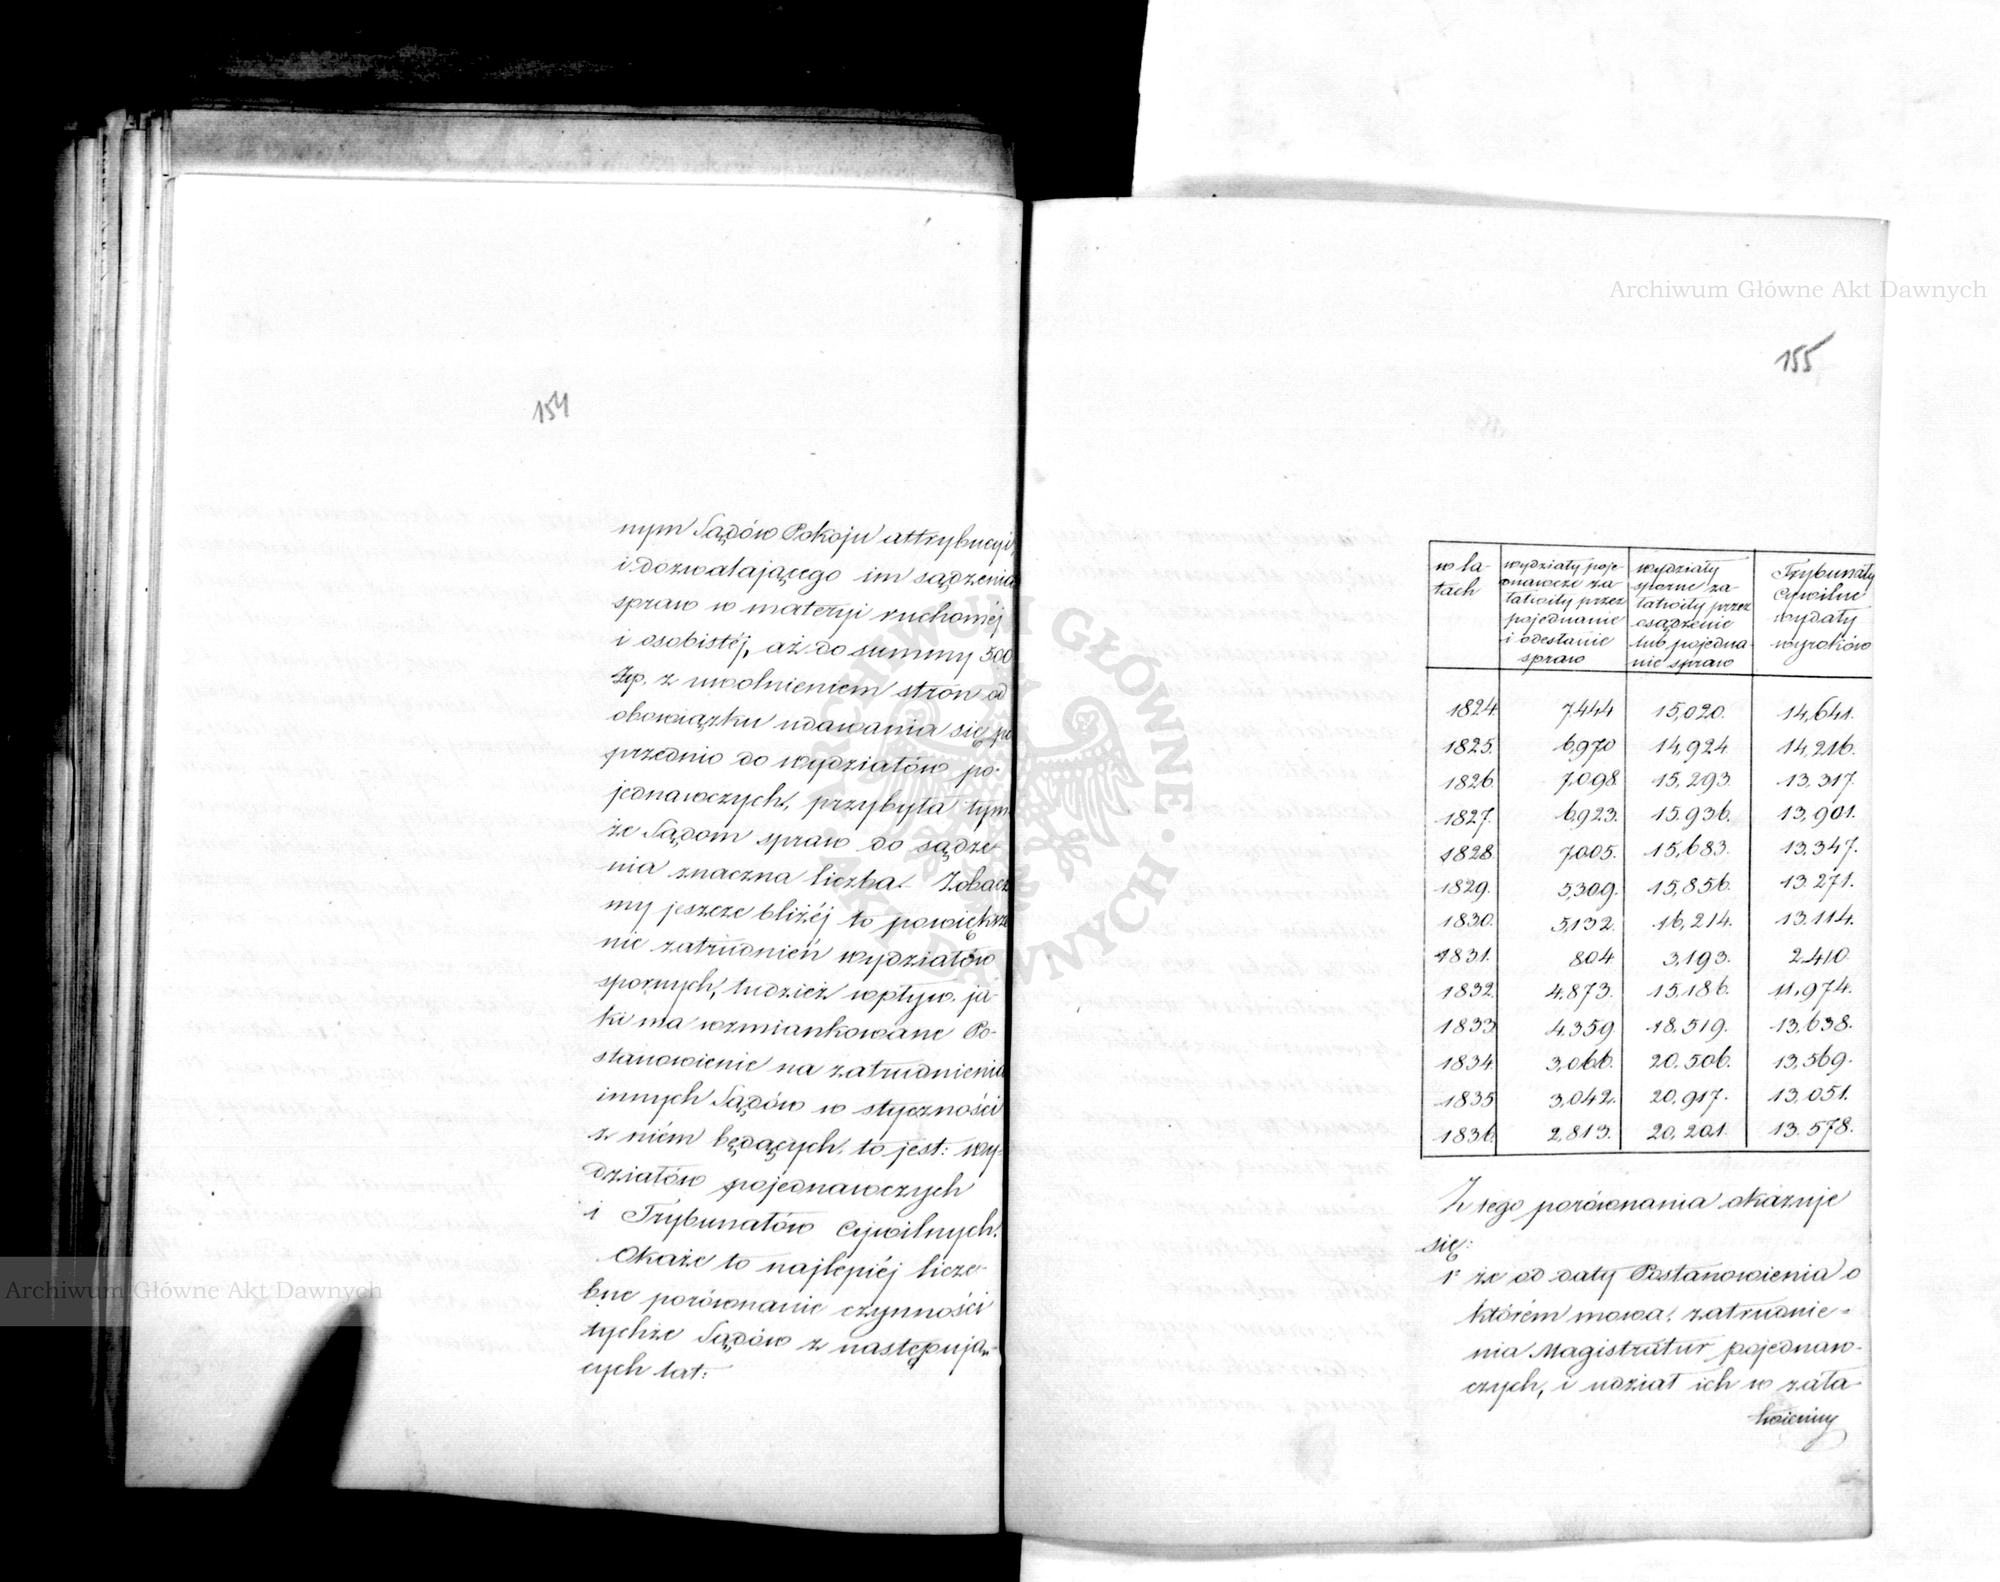 154
nym Sądów Pokoju attrybucyi
i dozwalającego im sądzenia
spraw w materyi ruchoméj
i osobistéj, aż do summy 500
Złp. z uwolnieniem stron od
obowiązku udawania się po
przednio do wydziałów po-
jednawczych, przybyła tym
że Sądom spraw do sądze-
nia znaczna liczba. Zobacz
my jeszcze bliżéj to powiększe
nie zatrudnień wydziałów
spornych, tudzież wpływ ja-
ki ma wzmiankowane Po-
stanowienie na zatrudnienia
innych Sądów w styczności
z niém będących, to jest: wy-
działów pojednawczych
i Trybunałów Cywilnych.
Okaże to najlepiéj licze-
bne porównanie czynności
tychże Sądów z następują-
cych lat:
155
w la- tach | wydziały poje dnawcze za- łatwiły przez pojednanie i odesłanie spraw | wydziały sporne za- łatwiły przez osądzenie lub pojedna- nie spraw | Trybunały Cywilne wydały wyroków
1824. 7444 15,020. 14,641.
1825. 6,970 14,924 14,216.
1826. 7,098. 15,293. 13,317.
1827. 6,923. 15.936. 13,901.
1828. 7,005. 15,683. 13,347.
1829. 5309. 15,856. 13.271.
1830. 5,132. 16,214. 13.114.
1831. 804 3,193. 2410.
1832. 4,873. 15,186. 11,974.
1833 4,359. 18.519. 13,638.
1834. 3,066. 20.506. 13,569.
1835 3,042. 20,917. 13,051.
1836. 2,813. 20,201. 13.578.
Z tego porównania okazuje
się:
1º że od daty Postanowienia o
którém mowa, zatrudnie-
nia Magistratur pojednaw-
czych, i udział ich w zała
twieniu
Archiwum Główne Akt Dawnych
Archiwum Główne Akt Dawnych
ARCHIWUM GŁÓWNE AKT DAWNYCH